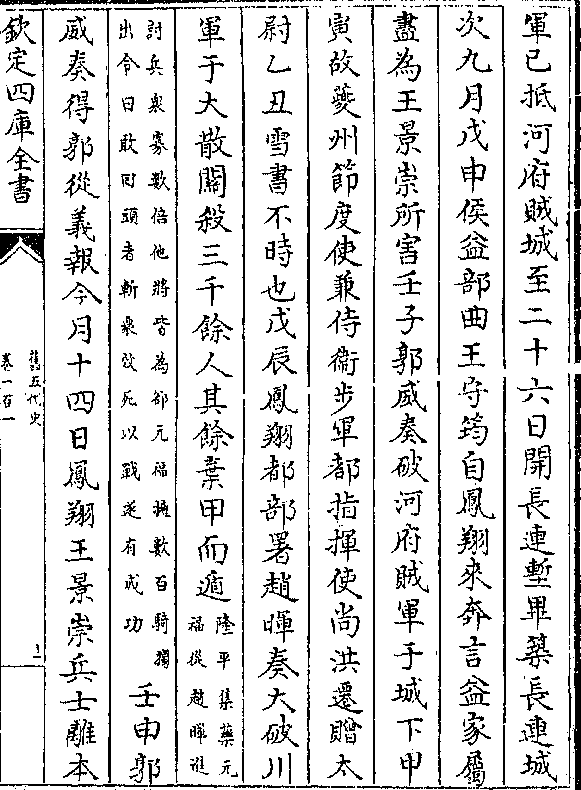 軍已抵河府賊城至二十六日開長連塹畢築長連城
次九月戊申侯益部曲王守筠自鳳翔來奔言益家屬
盡為王景崇所害壬子郭威奏破河府賊軍于城下甲
寅故夔州節度使兼侍衛步軍都指揮使尚洪遷贈太
尉乙丑雪書不時也戊辰鳳翔都部署趙暉奏大破川
軍于大散關殺三千餘人其餘棄甲而遁隆平集藥元
福從趙暉進
討兵衆寡數倍他將皆為却元福擁數百騎獨
出令曰敢回頭者斬衆效死以戰遂有成功
壬申郭
威奏得郭從義報今月十四日鳳翔王景崇兵士離本
欽定四庫全書
舊五代史
卷一百一